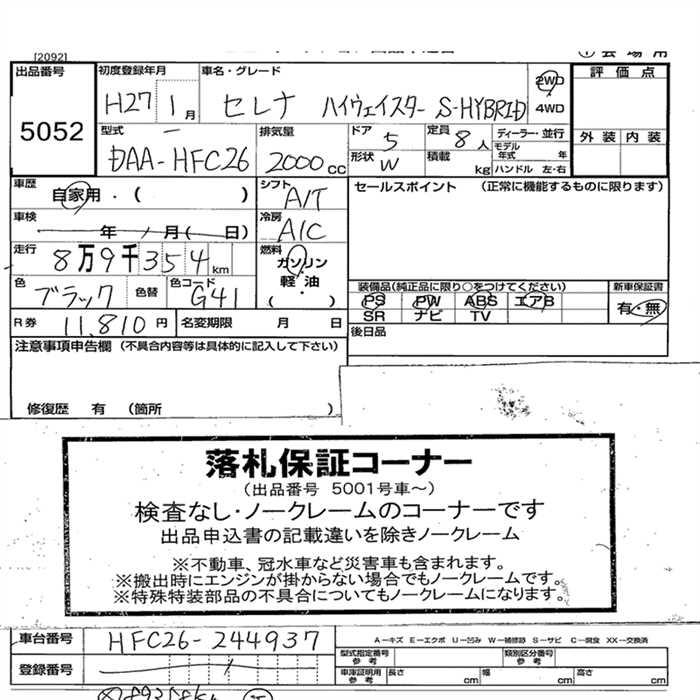 [2092]
出品番号 5052
初度登録年月 H27 1月
車名・グレード セレナ ハイウェイスター S-HYBRID
2WD
4WD
評価点
外装 内装
型式 DAA-HFC26
排気量 2000 CC
ドア 5
定員 8人
ディーラー・並行
形状 W
積載 kg
モデル年式 年
ハンドル 左・右
車歴 自家用・( )
シフト A/T
セールスポイント (正常に機能するものに限ります)
車検 年 月( 日)
冷房 A/C
走行 8万9千354km
燃料 ガソリン
軽油・
( )
色 ブラック 色替
色コード G41
装備品(純正品に限り○をつけてください)
PS PW ABS エアB
SR ナビ TV
新車保証書
有・無
R券 11,810円
名変期限 月 日
後日品
注意事項申告欄(不具合内容等は具体的に記入して下さい)
修復歴 有 (箇所 )
落札保証コーナー
(出品番号 5001号車～)
検査なし・ノークレームのコーナーです
出品申込書の記載違いを除きノークレーム
※不動車、冠水車など災害車も含まれます。
※搬出時にエンジンが掛からない場合でもノークレームです。
※特殊特装部品の不具合についてもノークレームになります。
車台番号 HFC26-244937
A－キズ E－エクボ U－凹み W－補修跡 S－サビ C－腐食 XX－交換済
登録番号
型式指定番号 参考
類別区分番号 参考
車庫証明用 参考 長さ cm 幅 cm 高さ cm